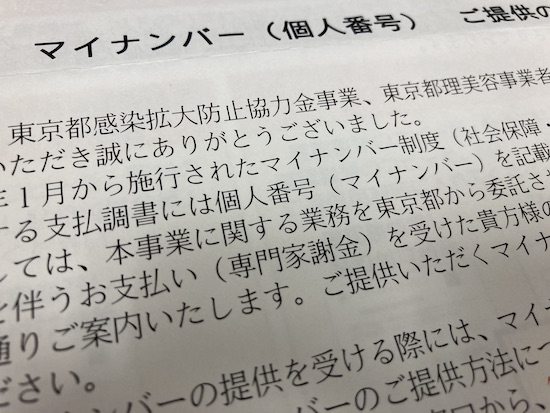 マイナンバー（個人番号）　ご提供の
東京都感染拡大防止協力金事業、東京都理美容事業者
いただき誠にありがとうございました。
年１月から施行されたマイナンバー制度（社会保障・
する支払調書には個人番号（マイナンバー）を記載
しては、本事業に関する業務を東京都から委託さ
を伴うお支払い（専門家謝金）を受けた貴方様の
通りご案内いたします。ご提供いただくマイナ
ださい。
ナンバーの提供を受ける際には、マイナ
バーのご提供方法につ